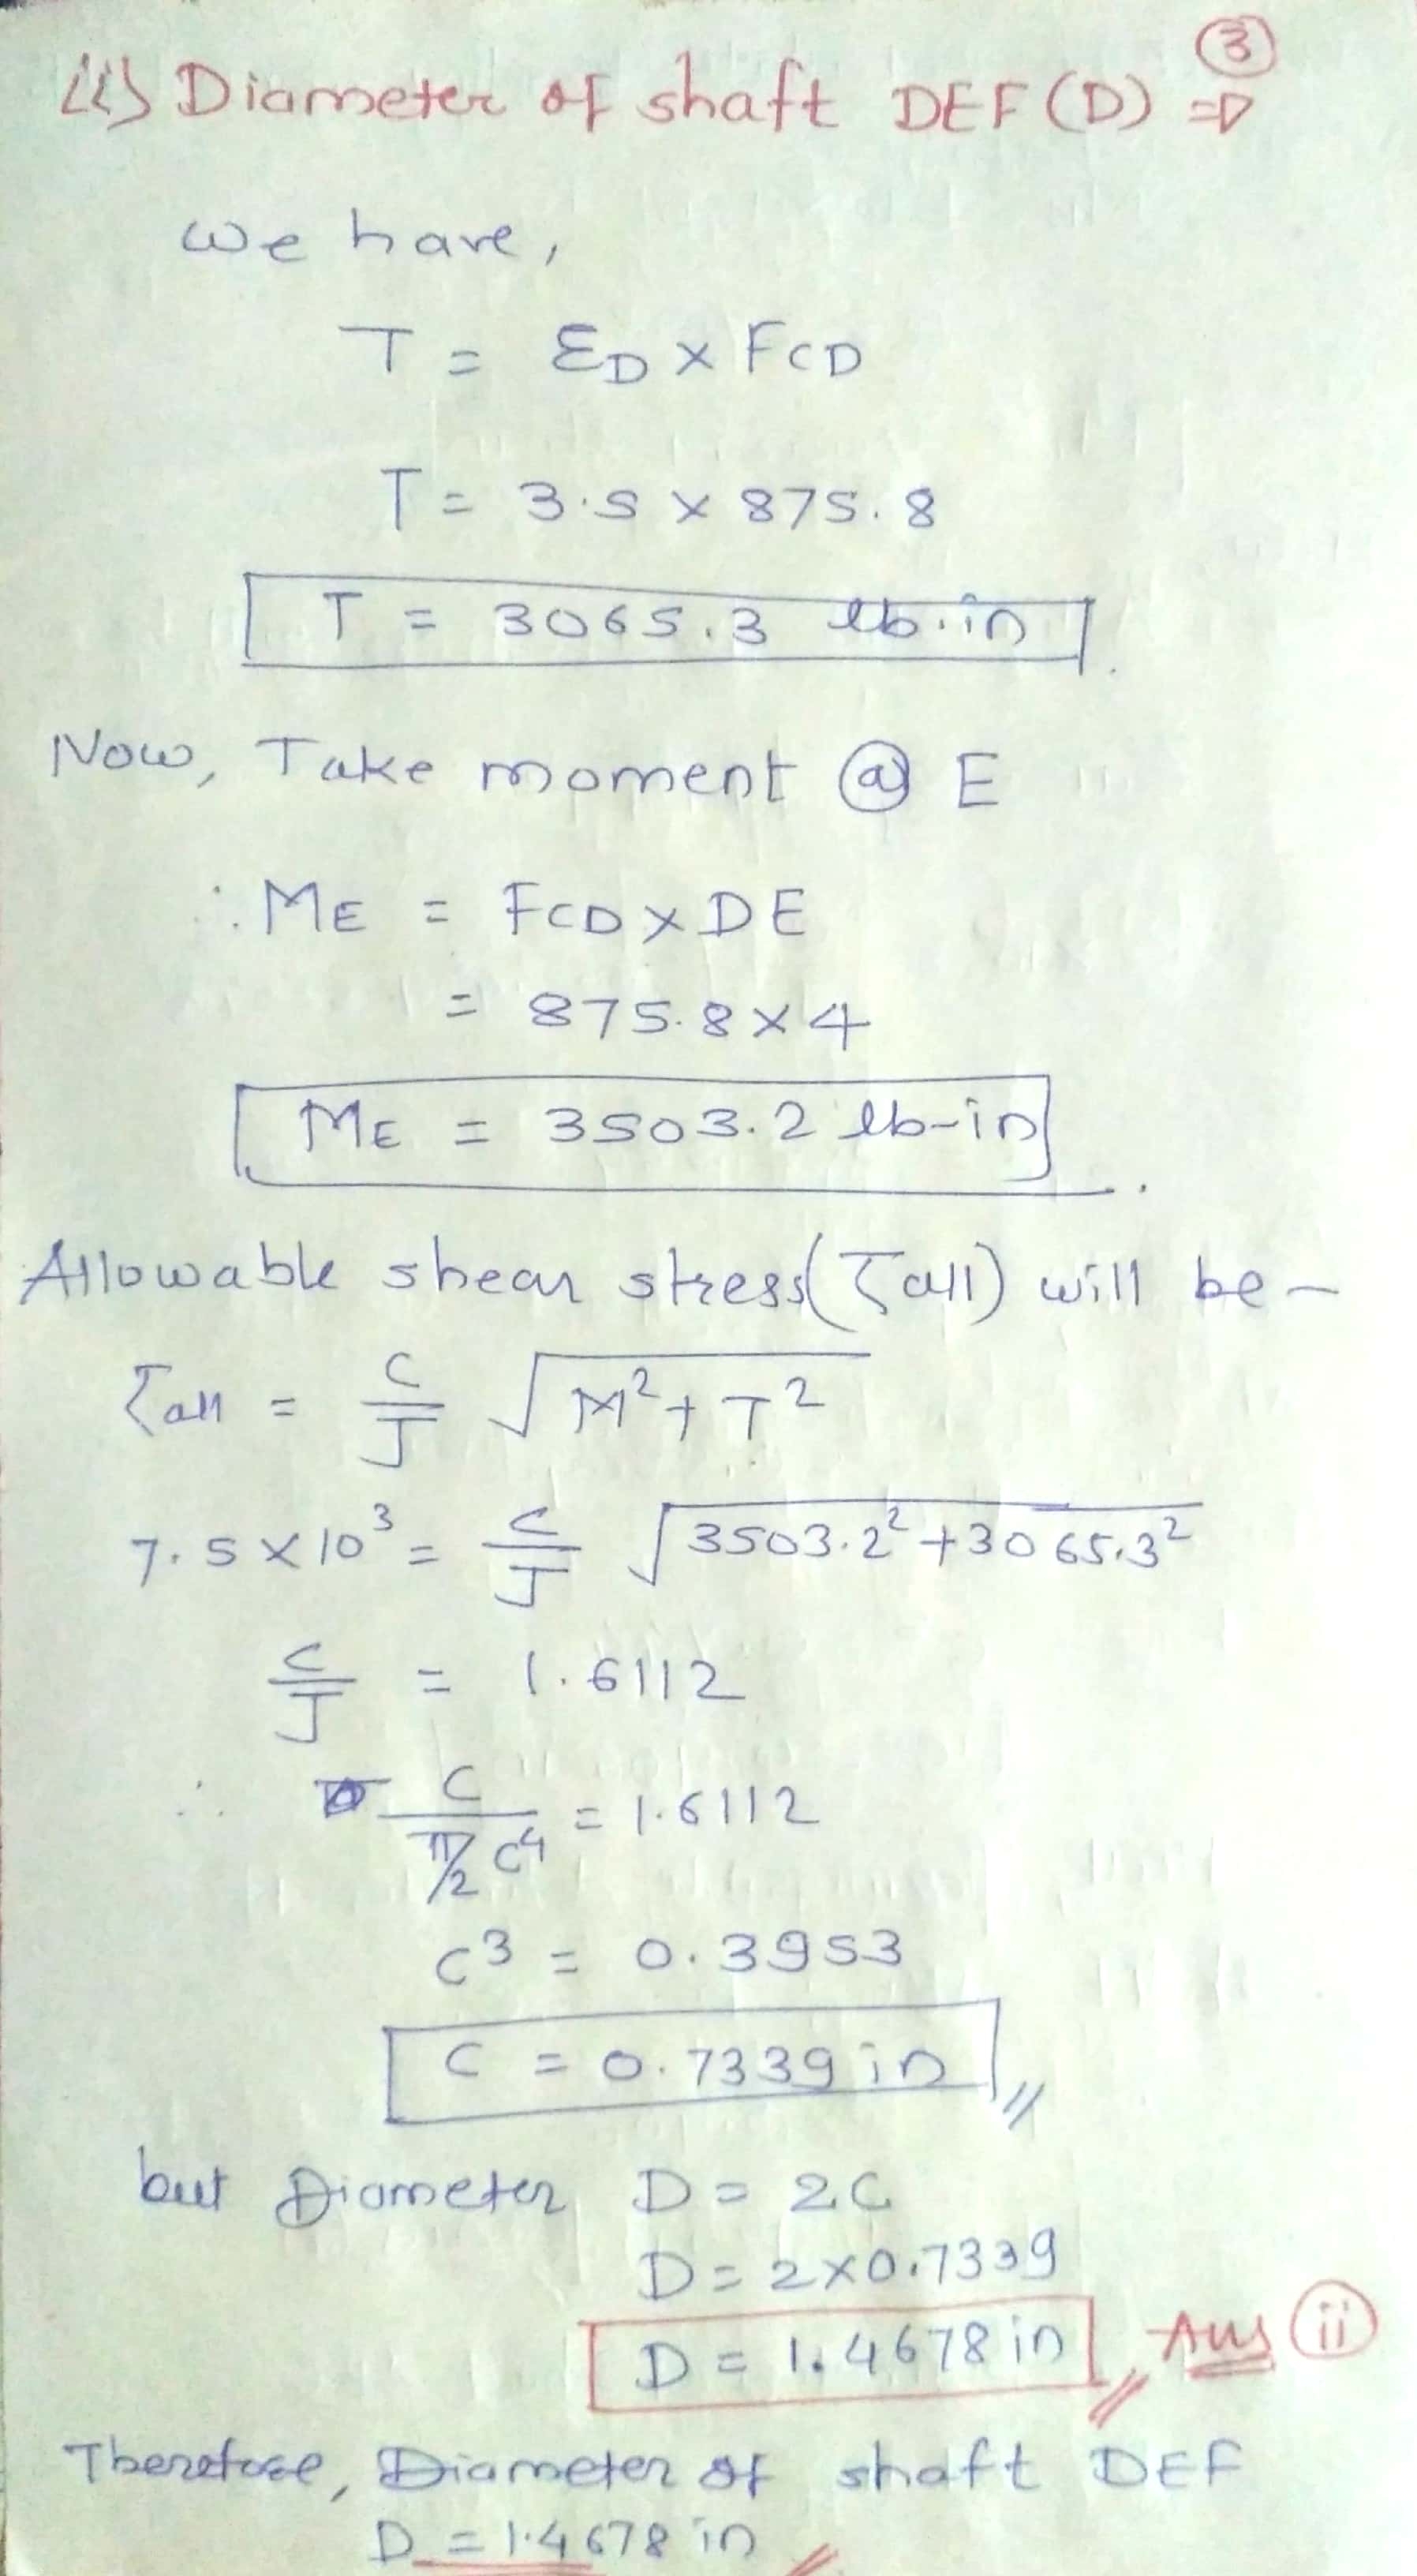 3
ii) Diameter of shaft DEF (D) ⇒
we have,
T = ƐD × FCD
T = 3.5 × 875.8
T = 3065.3 lb.in
Now, Take moment @ E
∴ ME = FCD × DE
= 875.8 × 4
ME = 3503.2 lb-in
Allowable shear stress (τall) will be -
τall = C/J √(M² + T²)
7.5 × 10³ = C/J √(3503.2² + 3065.3²)
C/J = 1.6112
∴ C/(π/2 C⁴) = 1.6112
C³ = 0.3953
C = 0.7339 in
but Diameter D = 2C
D = 2×0.7339
D = 1.4678 in Ans ii
Therefore, Diameter of shaft DEF
D = 1.4678 in